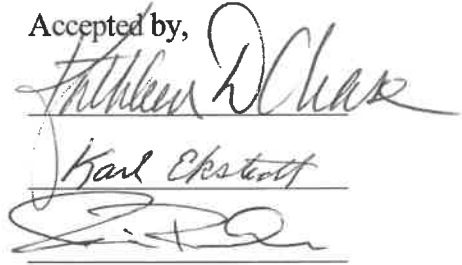 Accepted by,
Kathleen D Chase
Karl Ekstedt